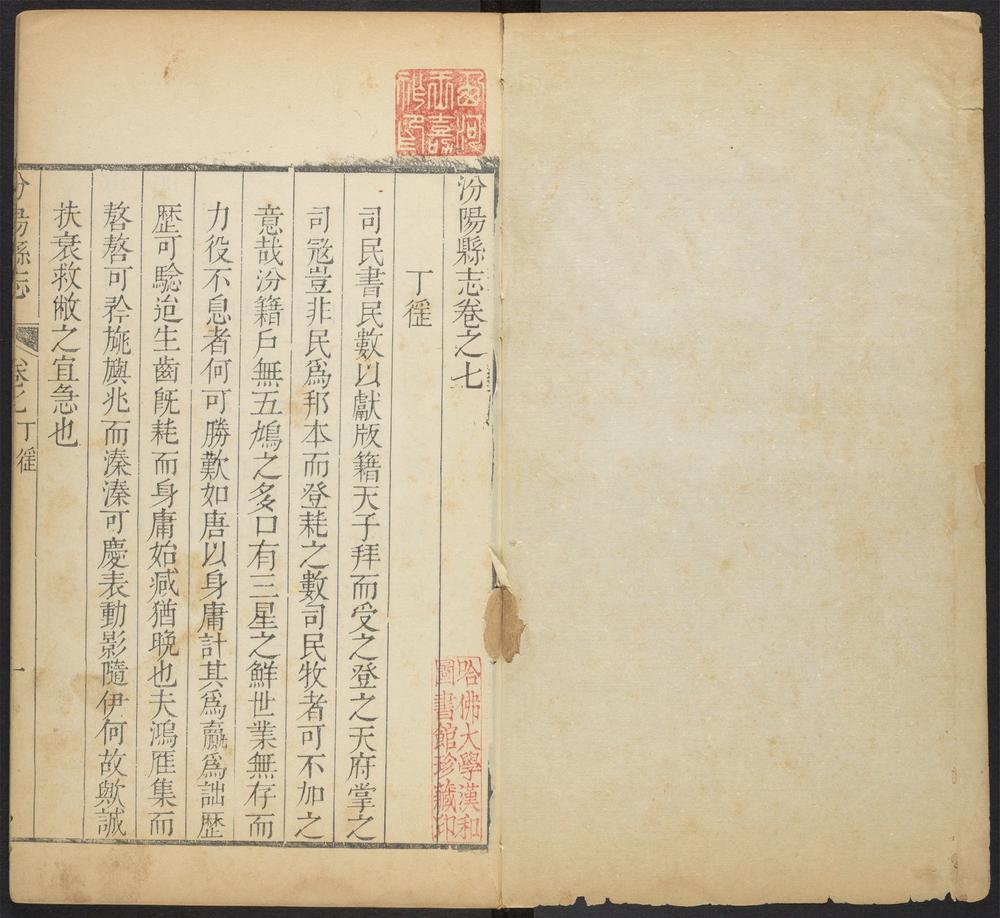 汾陽縣志卷之七
丁徭
司民書民數以獻版籍天子拜而受之登之天府掌之
司冦豈非民爲邦本而登耗之數司民牧者可不加之
意哉汾籍戶無五鳩之多口有三星之鮮世業無存而
力役不息者何可勝歎如唐以身庸計其爲羸爲詘歷
歷可騐迨生齒旣耗而身庸始减猶晚也夫鴻雁集而
嗸嗸可矜旐旟兆而溱溱可慶表動影隨伊何故歟誠
扶衰救敝之宜急也
汾陽縣志
卷七
丁徭
一
哈佛大學漢和
圖書館珍藏印